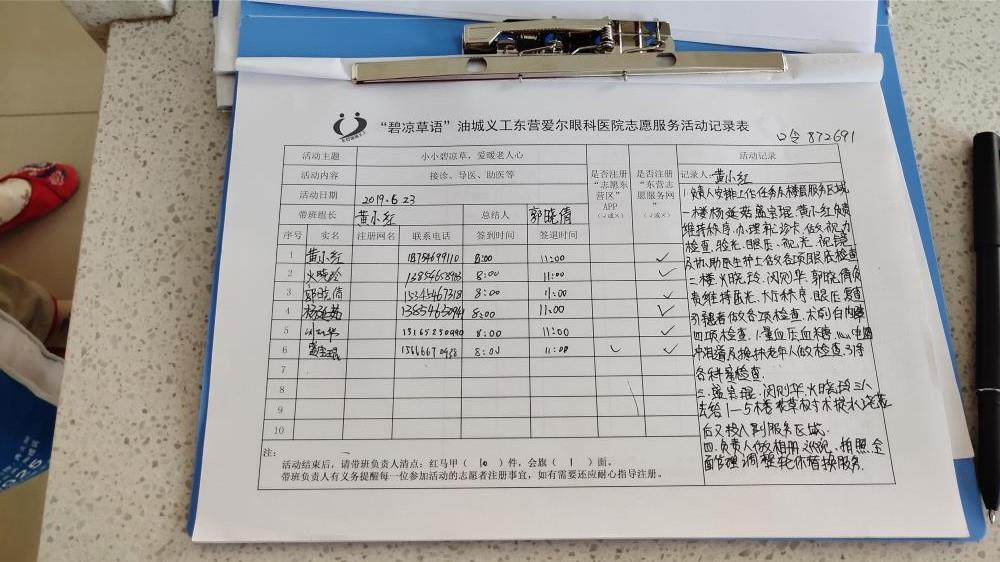 “碧凉草语”油城义工东营爱尔眼科医院志愿服务活动记录表
口令 872691
活动主题 小小碧凉草，爱暖老人心
活动内容 接诊、导医、助医等
活动日期 2019.6.23
带班组长 黄小红 总结人 郭晓倩
是否注册“志愿东营区”APP（√或×）
是否注册“东营志愿服务网”（√或×）
序号 实名 注册网名 联系电话 签到时间 签退时间
1 黄小红 18754699110 8:00 11:00 ✓
2 火晓玲 8:00 11:00 ✓
3 郭晓倩 15345467318 8:00 11:00 ✓
4 杨延茹 8:00 11:00 ✓
5 13165230990 8:00 11:00 ✓
6 8:00 11:00 ✓ ✓
7
8
9
10
注：
活动结束后，请带班负责人清点：红马甲（ 10 ）件，会旗（ 1 ）面。
带班负责人有义务提醒每一位参加活动的志愿者注册事宜，如有需要还应耐心指导注册。
活动记录
记录人：黄小红
负责人安排工作任务及楼层服务区域
一楼杨延茹 黄小红负责
维持秩序.办理补诊卡.做视力
检查.验光.眼压.视光.视镜
及协助医生护士做各项眼底检查
二楼火晓玲.闵则华.郭晓倩负
责维持 大厅秩序.眼压复查
引患者做各项检查.术前白内障
四项检查.量血压血糖
及搀扶老年人做检查.引导
各科室检查.
三. 闵则华.火晓玲三人
去给1—5楼
后又投入到服务区域.
四.负责人做相册 巡视.拍照.全
面管理调整轮休替换服务.